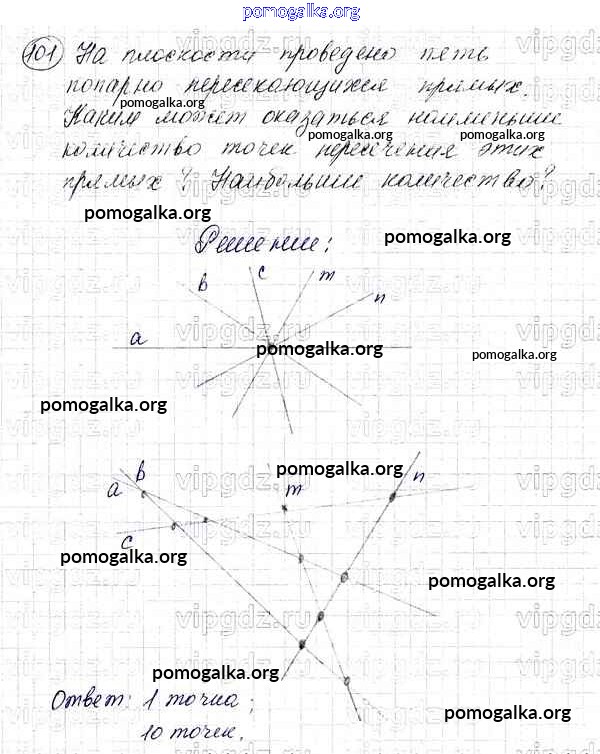 pomogalka.org
101 На плоскости проведено пять
попарно пересекающихся прямых.
pomogalka.org
Каким может оказаться наименьшее
pomogalka.org pomogalka.org
количество точек пересечения этих
прямых? Наибольшее количество?
pomogalka.org
Решение: pomogalka.org
b c m n
a pomogalka.org
pomogalka.org
pomogalka.org
vipgdz.ru
pomogalka.org
a b m n
c
pomogalka.org
pomogalka.org
pomogalka.org
Ответ: 1 точка;
pomogalka.org
10 точек.